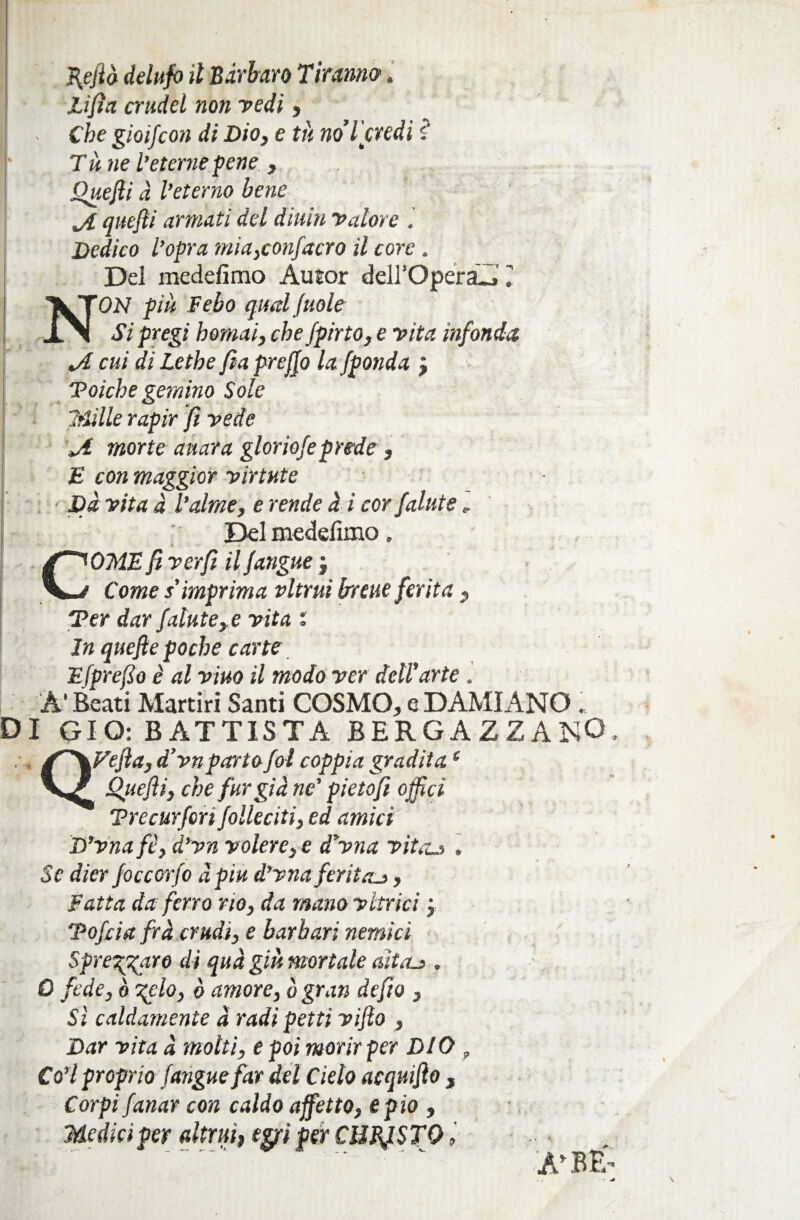 Reſtò deluſo il Bárbaro Tiranno.
Liſia crudel non vedi,
Che gioiſcon di Dio, e tù no'l credi?
Tù ne l'eterne pene,
Queſti à l'eterno bene
A queſti armati del diuin valore.
Dedico l'opra mia, conſacro il core.
Del medeſimo Autor dell'Opera.
NON più Febo qual ſuole
Si pregi homai, che ſpirto, e vita infonda
A cui di Lethe ſia preſſo la ſponda;
Poiche gemino Sole
Mille rapir ſi vede
A morte auara glorioſe prede,
E con maggior virtute
Dà vita à l'alme, e rende à i cor ſalute.
Del medeſimo.
COME ſi verſi il ſangue;
Come s'imprima vltrui breue ferita,
Per dar ſalute, e vita:
In queſte poche carte
Eſpreſſo è al viuo il modo ver dell'arte.
A' Beati Martiri Santi COSMO, e DAMIANO.
DI GIO: BATTISTA BERGAZZANO.
QVeſta, d'vn parto ſol coppia gradita
Queſti, che fur già ne' pietoſi offici
Precurſori ſolleciti, ed amici
D'vna fè, d'vn volere, e d'vna vita.
Se dier ſoccorſo à piu d'vna ferita,
Fatta da ferro rio, da mano vltrici;
Poſcia frà crudi, e barbari nemici
Sprezzaro di quà giù mortale aita.
O fede, ò zelo, ò amore, ò gran deſio,
Sì caldamente à radi petti viſto,
Dar vita à molti, e poi morir per DIO,
Co'l proprio ſangue far del Cielo acquiſto,
Corpi ſanar con caldo affetto, e pio,
Medici per altrui, egri per CHRISTO.
A' BE-